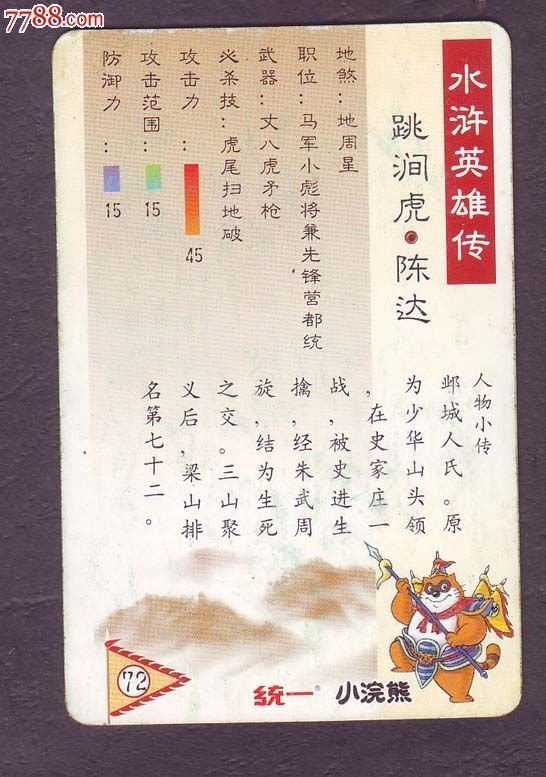 7788.com
中国收藏热线
水浒英雄传
跳涧虎·陈达
地煞：地周星
职位：马军小彪将兼先锋营都统
武器：丈八虎矛枪
必杀技：虎尾扫地破
攻击力：45
攻击范围：15
防御力：15
人物小传
邺城人氏。原
为少华山头领
，在史家庄一
战，被史进生
擒，经朱武周
旋，结为生死
之交。三山聚
义后，梁山排
名第七十二。
72
统一®
小浣熊